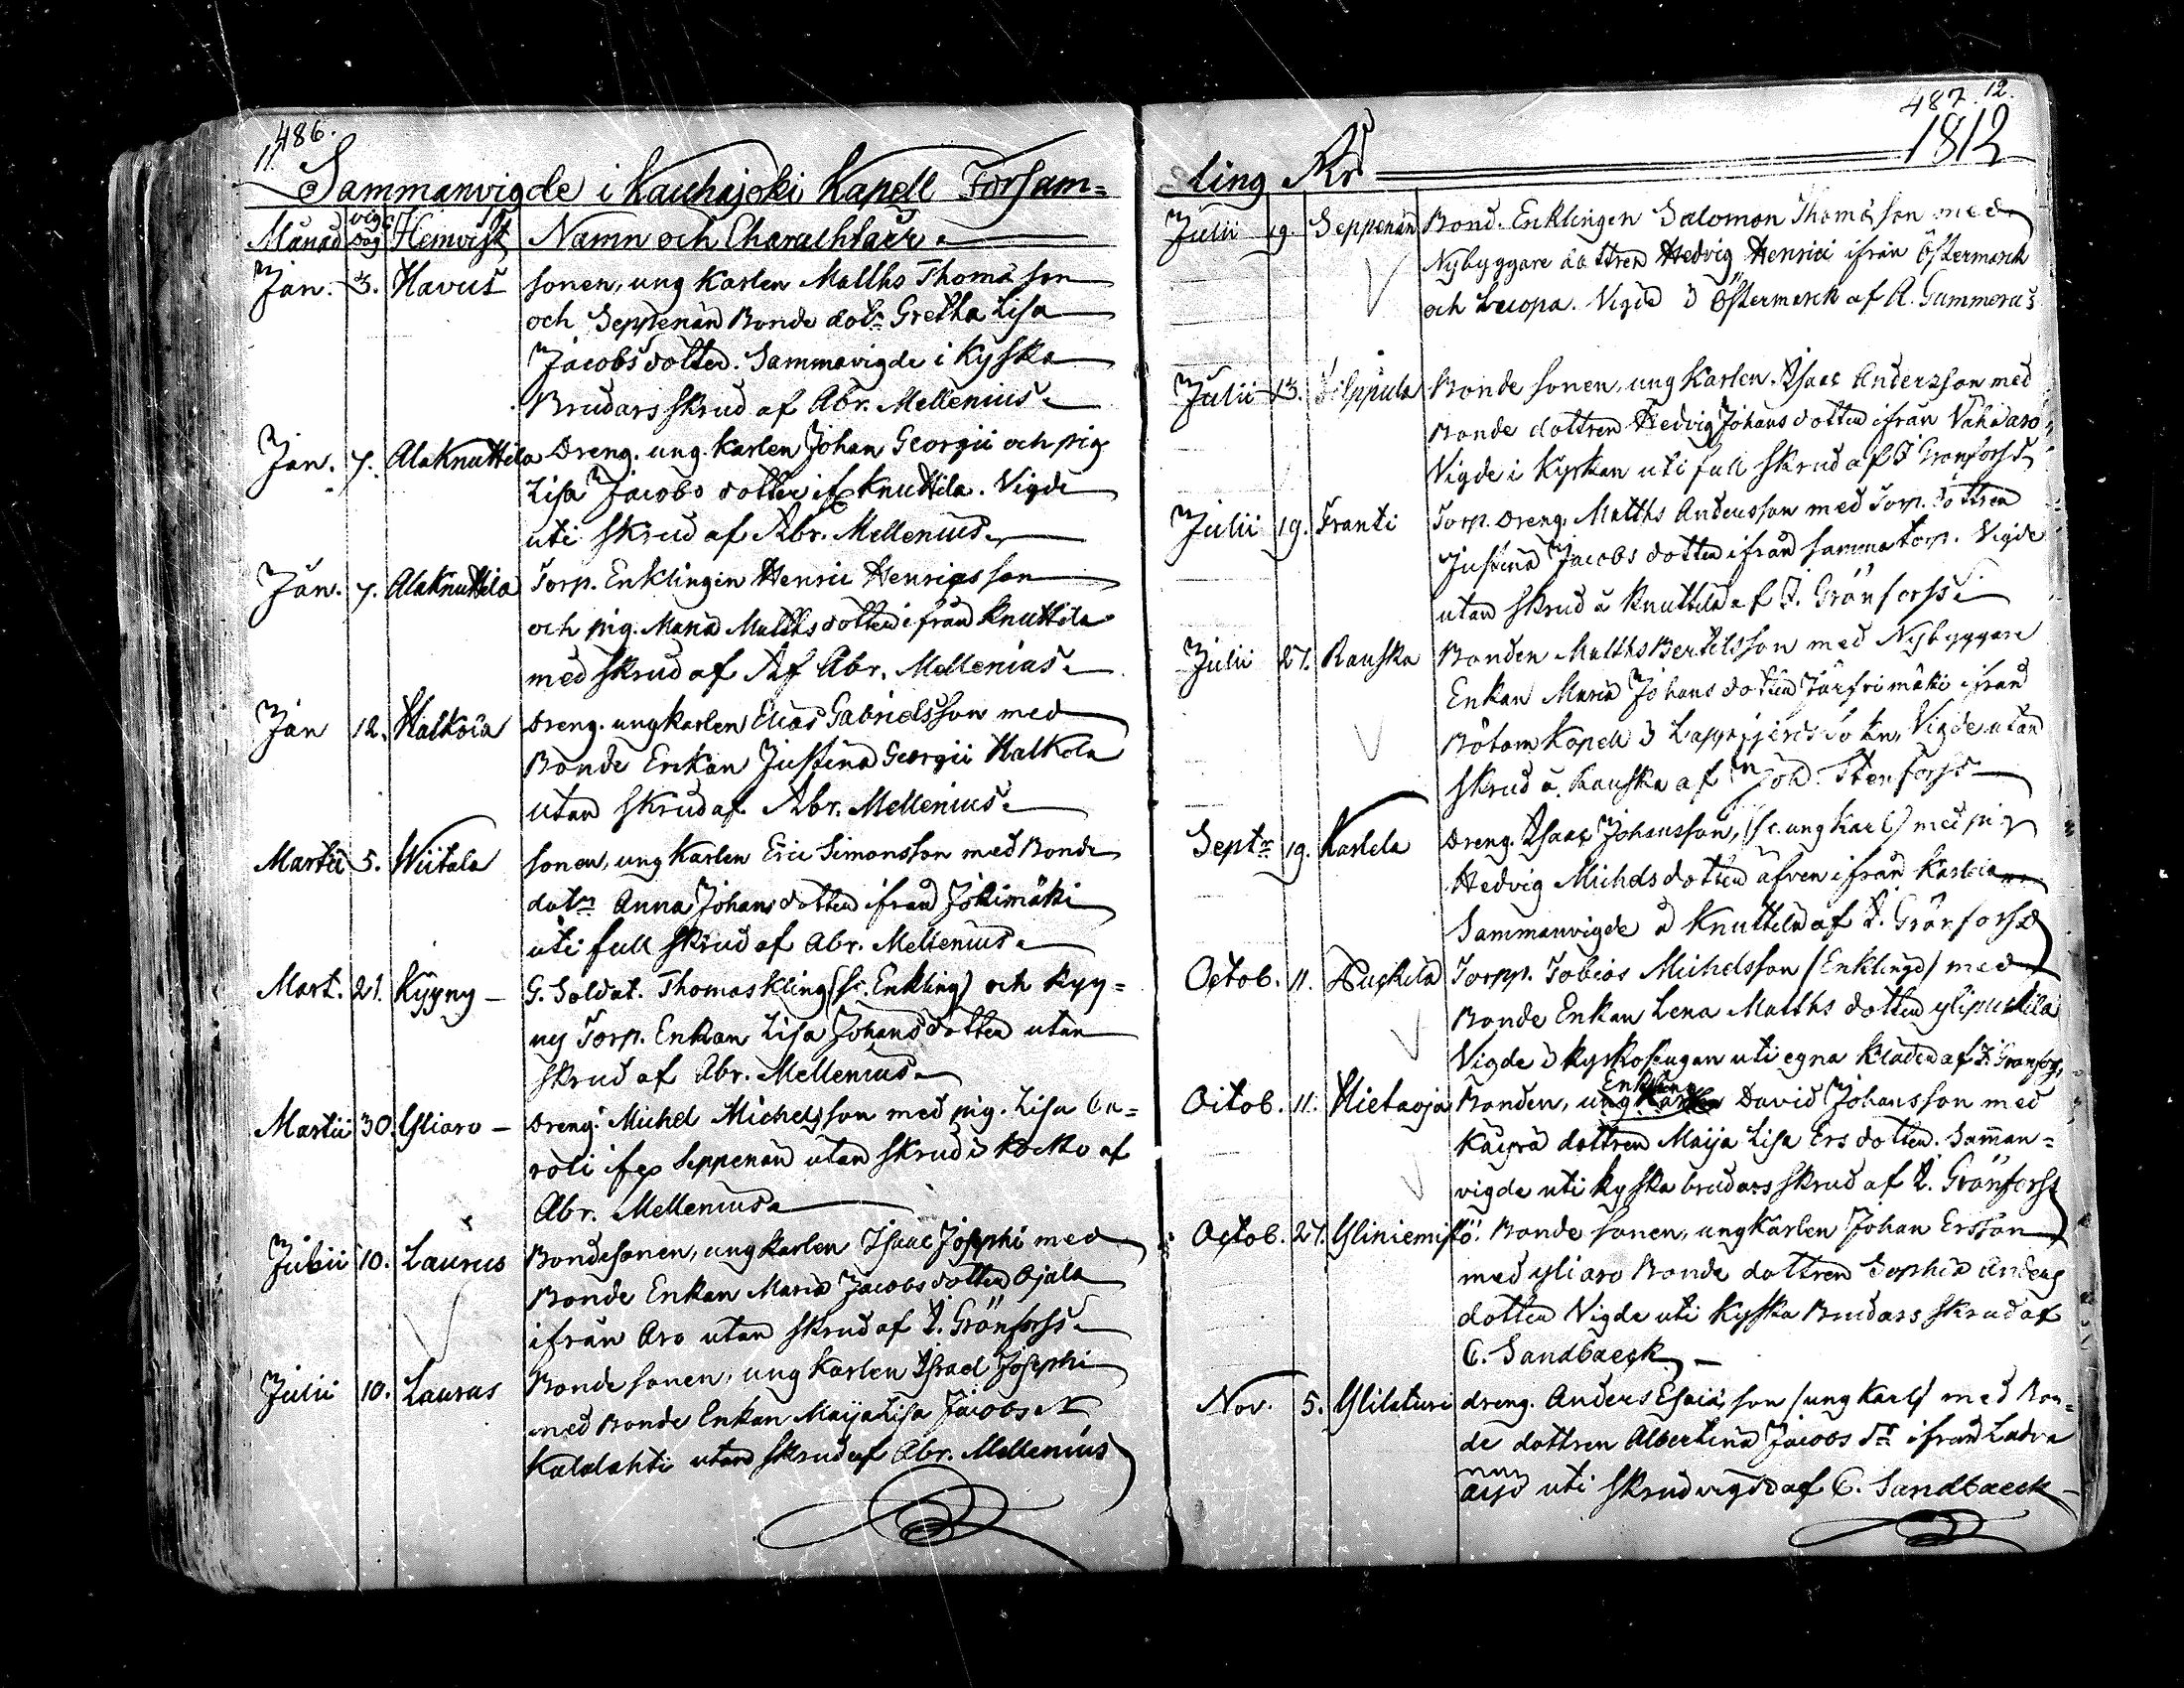 486.
11.
Sammanvigde i Kauhajoki Kapell Försam=
Månad vigdag Hemvist Namn och Charachtaer.
Jan. 3. Havus sonen, ung Karlen Matths Thomæson
och Seppenän Bonde dotr Gretha Lisa
Jacobsdotter. Sammavigde i Kyska
Brudars skrud af Abr. Mellenius.
Jan. 7. AlaKnuttila Dreng. ung. Karlen Johan Georgii och pig.
Lisa Jacobs dotter ifr Knuttila. Vigde
uti skrud af Abr. Mellenius.
Jan. 7. AlaKnuttila Torp. Enklingen Henric Henricsson
och pig. Maria Matthsdotter ifrån Knuttila
med skrud af Af Abr. Mellenius.
Jan 12. Halkola Dreng. ungkarlen Elias Gabrielsson med
Bonde Enkan Justina Georgii Halkola
utan skrud af Abr. Mellenius.
Martii 5. Wiitala sonen, ung Karlen Eric Simonsson med Bonde
dotrn Anna Johansdotter ifrån Jokimäki
uti full skrud af Abr. Mellenius.
Mart. 21. Kyyny – G. Soldat. Thomas Kling (sc. Enkling) och Kyy=
ny Torp. Enkan Lisa Johansdotter utan
skrud af Abr. Mellenius.
Martii 30. Yliaro – Dreng. Michel Michelsson med pig. Lisa Ca=
roli ifr Seppenän utan skrud i Kocko af
Abr. Mellenius.
Julii 10. Laurus Bondesonen, ungkarlen Isaac Josephi med
Bonde Enkan Maria Jacobsdotter Ojala
ifrån Aro utan skrud af I. Grönforss.
Julii 10. Laurus Bonde sonen, ung Karlen Israel Josephi
med Bonde Enkan Maija Lisa Jacobs dr
Kalalahti utan skrud af Abr. Mellenius
487. 12.
ling År 1812
Julii 19. Seppenän Bond. Enklingen Salomon Thomæson med
Nybyggare dottren Hedvig Henrici ifrån Östermark
och Vigde i Östermark af A. Gummerus
Julii 13. Filppula Bonde sonen, ung Karlen. Isaac Andersson med
Bonde dottren Hedvig Johansdotter ifrån Vähäaro,
Vigde i Kyrkan uti full skrud af I Grönforss
Julii 19. Franti Torp. dreng. Matths Andersson med Torp. dottren
Justina Jacobs dotter ifrån samma torp. Vigde
utan skrud å Knuttila af I. Grönforss.
Julii 27. Rauska Bonden Matths Bertilsson med Nybyggare
Enkan Maria Johansdotter ifrån
Bötom Kapell i Lappfjerds Sokn, Vigde utan
skrud å Rauska af Joh. Stenforss
Septr 19. Karlela Dreng. Isaac Johansson, (sc. ung Karl) med pig
Hedvig Michelsdotter äfven ifrån Karlela
Sammanvigde å Knuttila af I. Grönforss
Octob. 11. Puskila Torpp. Tobias Michelsson (Enkling) med
Bonde Enkan Lena Matths dotter ylipuskila
Vigde i Kyrkostugan uti egna Kläder af I. Grönfors,
Octob. 11. Hietaoja Bonden, ung Karlen Enkling David Johansson med
Käyrä dottren Maija Lisa Ersdotter. Samman=
vigde uti kyska brudars skrud af I. Grönforss
Octob. 27. Yliniemistö. Bonde sonen, ungkarlen Johan Ersson
med yliaro Bonde dottren Sophia Anders
dotter Vigde uti Kyska Brudars skrud af
C. Sandbaeck –
Nov. 5. Ylilaturi dreng. Anders Esaiæson (ung Karl) med Bon=
de dottren Albertina Jacobs dr ifrån Ladva
uti skrud vigde af C. Sandbaeck